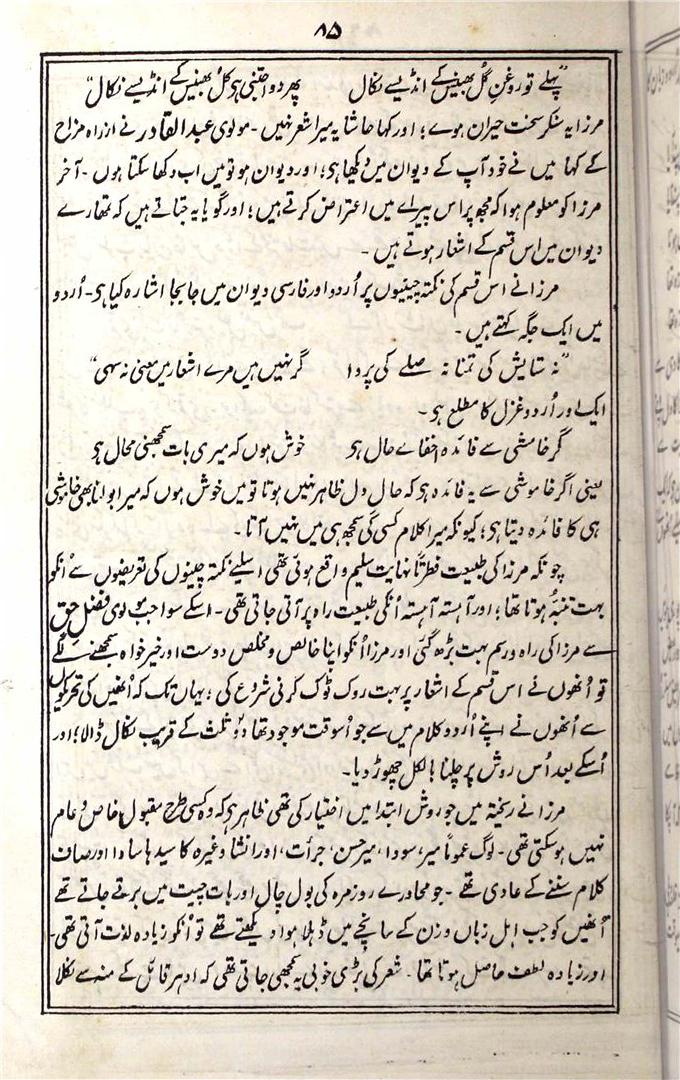 ۸۵
"پہلے تو روغنِ گُل بھینس کے انڈیسے نکال پھر دوا جتنی ہی کُل بھینس کے انڈیسے نکال"
مرزا یہ سنکر سخت حیران ہوے؛ اور کہا حاشا یہ میرا شعر نہیں - مولوی عبدالقادر نے از راہِ مزاح
کے کہا میں نے خود آپ کے دیوان میں دیکھا ہی؛ اور دیوان ہو تو میں اب دکھا سکتا ہوں - آخر
مرزا کو معلوم ہوا کہ مجھپر اس پیراے میں اعتراض کرتے ہیں؛ اور گویا یہ جتاتے ہیں کہ تمھارے
دیوان میں اس قسم کے اشعار ہوتے ہیں -
مرزا نے اس قسم کی نکتہ چینیوں پر اُردو اور فارسی دیوان میں جا بجا اشارہ کیا ہی - اُردو
میں ایک جگہ کہتے ہیں -
"نہ ستایش کی تمنا نہ صلے کی پروا گر نہیں ہیں مرے اشعار میں معنی نہ سہی"
ایک اور اُردو غزل کا مطلع ہی -
گر خامشی سے فائدہ اخفاے حال ہی خوش ہوں کہ میری بات سمجھنی محال ہی
یعنی اگر خاموشی سے یہ فائدہ ہی کہ حالِ دل ظاہر نہیں ہوتا تو میں خوش ہوں کہ میرا بولنا بھی خاموشی
ہی کا فائدہ دیتا ہی؛ کیونکہ میرا کلام کسی کی سمجھ ہی میں نہیں آتا -
چونکہ مرزا کی طبیعت فطرتاً نہایت سلیم واقع ہوئی تھی اسلیے نکتہ چینوں کی تعریضوں سے اُنکو
بہت تنبّہ ہوتا تھا؛ اور آہستہ آہستہ اُنکی طبیعت راہ پر آتی جاتی تھی - اسکے سوا جب مولوی فضلِ حق
سے مرزا کی راہ و رسم بہت بڑھ گئی اور مرزا اُنکو اپنا خالص و مخلص دوست اور خیر خواہ سمجھنے لگے
تو اُنھوں نے اس قسم کے اشعار پر بہت روک ٹوک کرنی شروع کی؛ یہاں تک کہ اُنھیں کی تحریک
سے اُنھوں نے اپنے اُردو کلام میں سے جو اُسوقت موجود تھا دو ثلث کے قریب نکال ڈالا؛ اور
اُسکے بعد اُس روش پر چلنا بالکل چھوڑ دیا -
مرزا نے ریختہ میں جو روش ابتدا میں اختیار کی تھی ظاہر ہی کہ وہ کسی طرح مقبولِ خاص و عام
نہیں ہو سکتی تھی - لوگ عموماً میر، سودا، میر حسن، جرأت، اور انشا وغیرہ کا سیدھا سادا اور صاف
کلام سننے کے عادی تھے - جو محاورے روزمرہ کی بول چال اور بات چیت میں برتے جاتے تھے
اُنھیں کو جب اہلِ زباں وزن کے سانچے میں ڈہلا ہوا دیکھتے تھے تو اُنکو زیادہ لذت آتی تھی -
اور زیادہ لطف حاصل ہوتا تھا - شعر کی بڑی خوبی یہ سمجھی جاتی تھی کہ ادہر قائل کے منہ سے نکلا